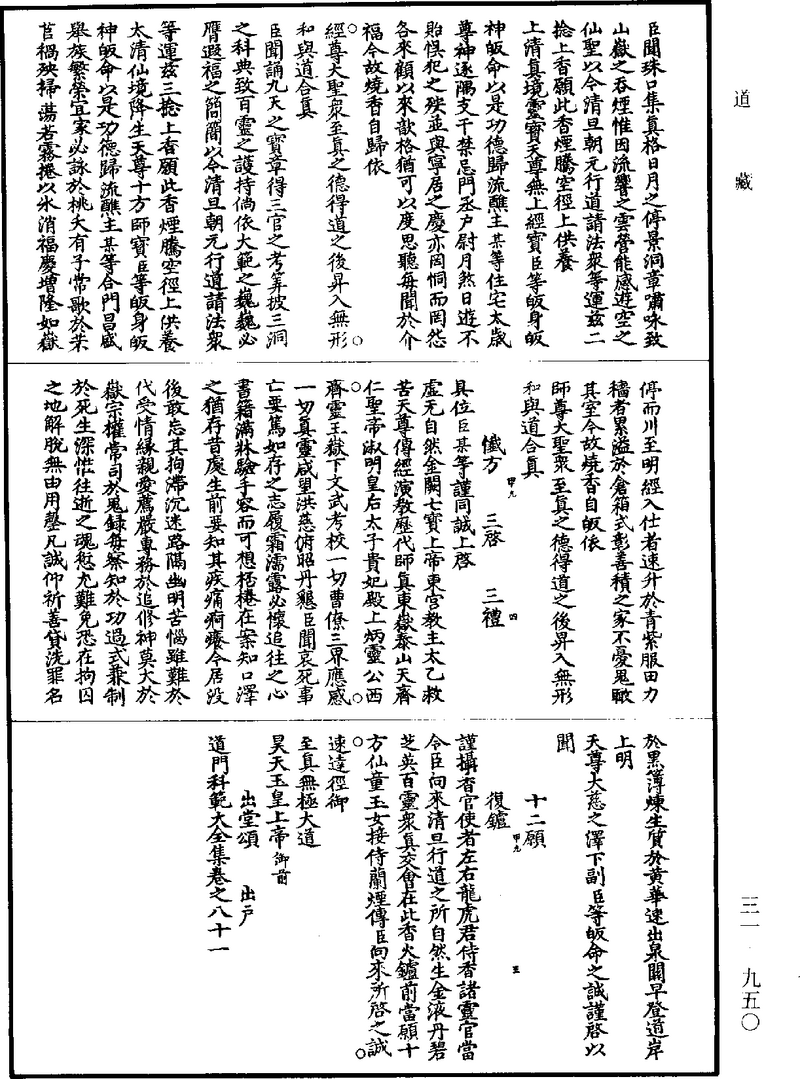 道藏
三一 九五〇
臣聞珠口集真格日月之停景洞章嘯咏致
山嶽之吞煙惟因流響之雲營能感遊空之
仙聖以令清旦朝元行道請法衆等運茲二
捻上香願此香煙騰空徑上供養
上清真境靈寶天尊無上經寶臣等皈身皈
神皈命以是功德歸流醮主某等住宅太歲
尊神逐隅支干禁忌門丞戶尉月煞日遊不
貽惧犯之殃並與寧居之慶亦罔恫而罔怨
各來顧以來歆格猶可以度思聽每聞於介
福今故燒香自歸依
經尊大聖衆至真之德得道之後昇入無形
和與道合真
臣聞誦九天之寶章得三官之考筭披三洞
之科典致百靈之護持倘依大範之巍巍必
膺遐福之簡簡以今清旦朝元行道請法衆
等運茲三捻上香願此香煙騰空徑上供養
太清仙境降生天尊十方師寶臣等皈身皈
神皈命以是功德歸流醮主某等合門昌盛
舉族繁榮宜家必詠於桃夭有子常歌於芣
苢禍殃掃蕩若霧捲以氷消福慶增隆如嶽
停而川至明經入仕者速升於青紫服田力
穡者累溢於倉箱式彰善積之家不憂鬼瞰
其室今故燒香自皈依
師尊大聖衆至真之德得道之後昇入無形
和與道合真
懺方 三啓 三禮
具位臣某等謹同誠上啓
虛无自然金闕七寶上帝東宮教主太乙救
苦天尊傳經演教歷代師真東嶽泰山天齊
仁聖帝淑明皇后太子貴妃殿上炳靈公西
齊靈王嶽下文武考校一切曹僚三界應感
一切真靈咸望洪慈俯昭丹懇臣聞哀死事
亡要篤如存之志履霜濡露必懷追往之心
書籍滿牀驗手容而可想桮棬在案知口澤
之猶存昔處生前要知其疾痛痾癢今居沒
後敢忘其拘滯沉迷路隔幽明苦惱雖難於
代受情緣親愛薦嚴專務於追修神莫大於
嶽宗權常司於鬼録每察知於功過式兼制
於死生深恠往逝之魂愆尤難免恐在拘囚
之地解脫無由用罄凡誠仰祈善貸洗罪名
於黑簿煉生質於黄華速出泉關早登道岸
上明
天尊大慈之澤下副臣等皈命之誠謹啓以
聞
十二願
復鑪
謹攝香官使者左右龍虎君侍香諸靈官當
令臣向來清旦行道之所自然生金液丹碧
芝英百靈衆真交會在此香火鑪前當願十
方仙童玉女接侍蘭煙傳臣向來所啓之誠
速達徑御
至真無極大道
昊天玉皇上帝御前
出堂頌 出戶
道門科範大全集卷之八十一